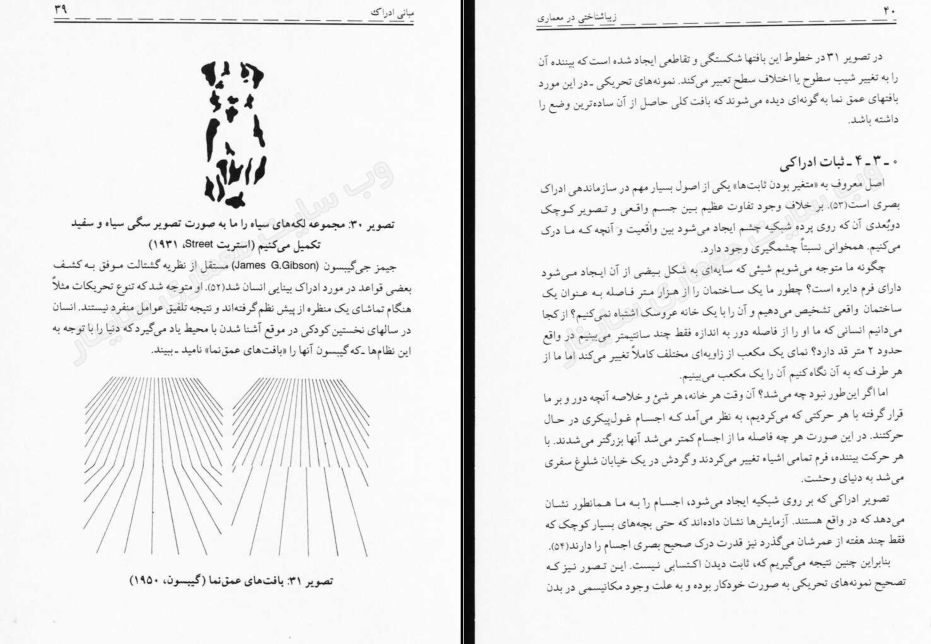 ۴۰
زیباشناختی در معماری
در تصویر ۳۱ در خطوط این بافتها شکستگی و تقاطعی ایجاد شده است که بیننده آن
را به تغییر شیب سطوح یا اختلاف سطح تعبیر می‌کند. نمونه‌های تحریکی ـ در این مورد
بافتهای عمق نما به‌گونه‌ای دیده می‌شوند که بافت کلی حاصل از آن ساده‌ترین وضع را
داشته باشد.
۰ ـ ۳ ـ ۴ ـ ثبات ادراکی
اصل معروف به «متغیر بودن ثابت‌ها» یکی از اصول بسیار مهم در سازماندهی ادراک
بصری است(۵۳). بر خلاف وجود تفاوت عظیم بین جسم واقعی و تصویر کوچک
دوبُعدی آن که روی پرده شبکیه چشم ایجاد می‌شود بین واقعیت و آنچه که ما درک
می‌کنیم. همخوانی نسبتاً چشمگیری وجود دارد.
چگونه ما متوجه می‌شویم شیئی که سایه‌ای به شکل بیضی از آن ایجاد می‌شود
دارای فرم دایره است؟ چطور ما یک ساختمان را از هزار متر فاصله به عنوان یک
ساختمان واقعی تشخیص می‌دهیم و آن را با یک خانه عروسک اشتباه نمی‌کنیم؟ از کجا
می‌دانیم انسانی که ما او را از فاصله دور به اندازه فقط چند سانتیمتر می‌بینیم در واقع
حدود ۲ متر قد دارد؟ نمای یک مکعب از زاویه‌ای مختلف کاملاً تغییر می‌کند اما ما از
هر طرف که به آن نگاه کنیم آن را یک مکعب می‌بینیم.
اما اگر این‌طور نبود چه می‌شد؟ آن وقت هر خانه، هر شئ و خلاصه آنچه دور و بر ما
قرار گرفته با هر حرکتی که می‌کردیم، به نظر می‌آمد که اجسام غول‌پیکری در حال
حرکتند. در این صورت هر چه فاصله ما از اجسام کمتر می‌شد آنها بزرگتر می‌شدند. با
هر حرکت بیننده، فرم تمامی اشیاء تغییر می‌کردند و گردش در یک خیابان شلوغ سفری
می‌شد به دنیای وحشت.
تصویر ادراکی که بر روی شبکیه ایجاد می‌شود، اجسام را به ما همانطور نشان
می‌دهد که در واقع هستند. آزمایش‌ها نشان داده‌اند که حتی بچه‌های بسیار کوچک که
فقط چند هفته از عمرشان می‌گذرد نیز قدرت درک صحیح بصری اجسام را دارند(۵۴).
بنابراین چنین نتیجه می‌گیریم که، ثابت دیدن اکتسابی نیست. این تصور نیز که
تصحیح نمونه‌های تحریکی به صورت خودکار بوده و به علت وجود مکانیسمی در بدن
مبانی ادراک
۳۹
تصویر ۳۰: مجموعه لکه‌های سیاه را ما به صورت تصویر سگی سیاه و سفید
تکمیل می‌کنیم (استریت Street، ۱۹۳۱)
جیمز جی‌گیبسون (James G.Gibson) مستقل از نظریه گشتالت موفق به کشف
بعضی قواعد در مورد ادراک بینایی انسان شد(۵۲). او متوجه شد که تنوع تحریکات مثلاً
هنگام تماشای یک منظره از پیش نظم گرفته‌اند و نتیجه تلفیق عوامل منفرد نیستند. انسان
در سالهای نخستین کودکی در موقع آشنا شدن با محیط یاد می‌گیرد که دنیا را با توجه به
این نظام‌ها ـ که گیبسون آنها را «بافت‌های عمق‌نما» نامید ـ ببیند.
تصویر ۳۱: بافت‌های عمق‌نما (گیبسون، ۱۹۵۰)